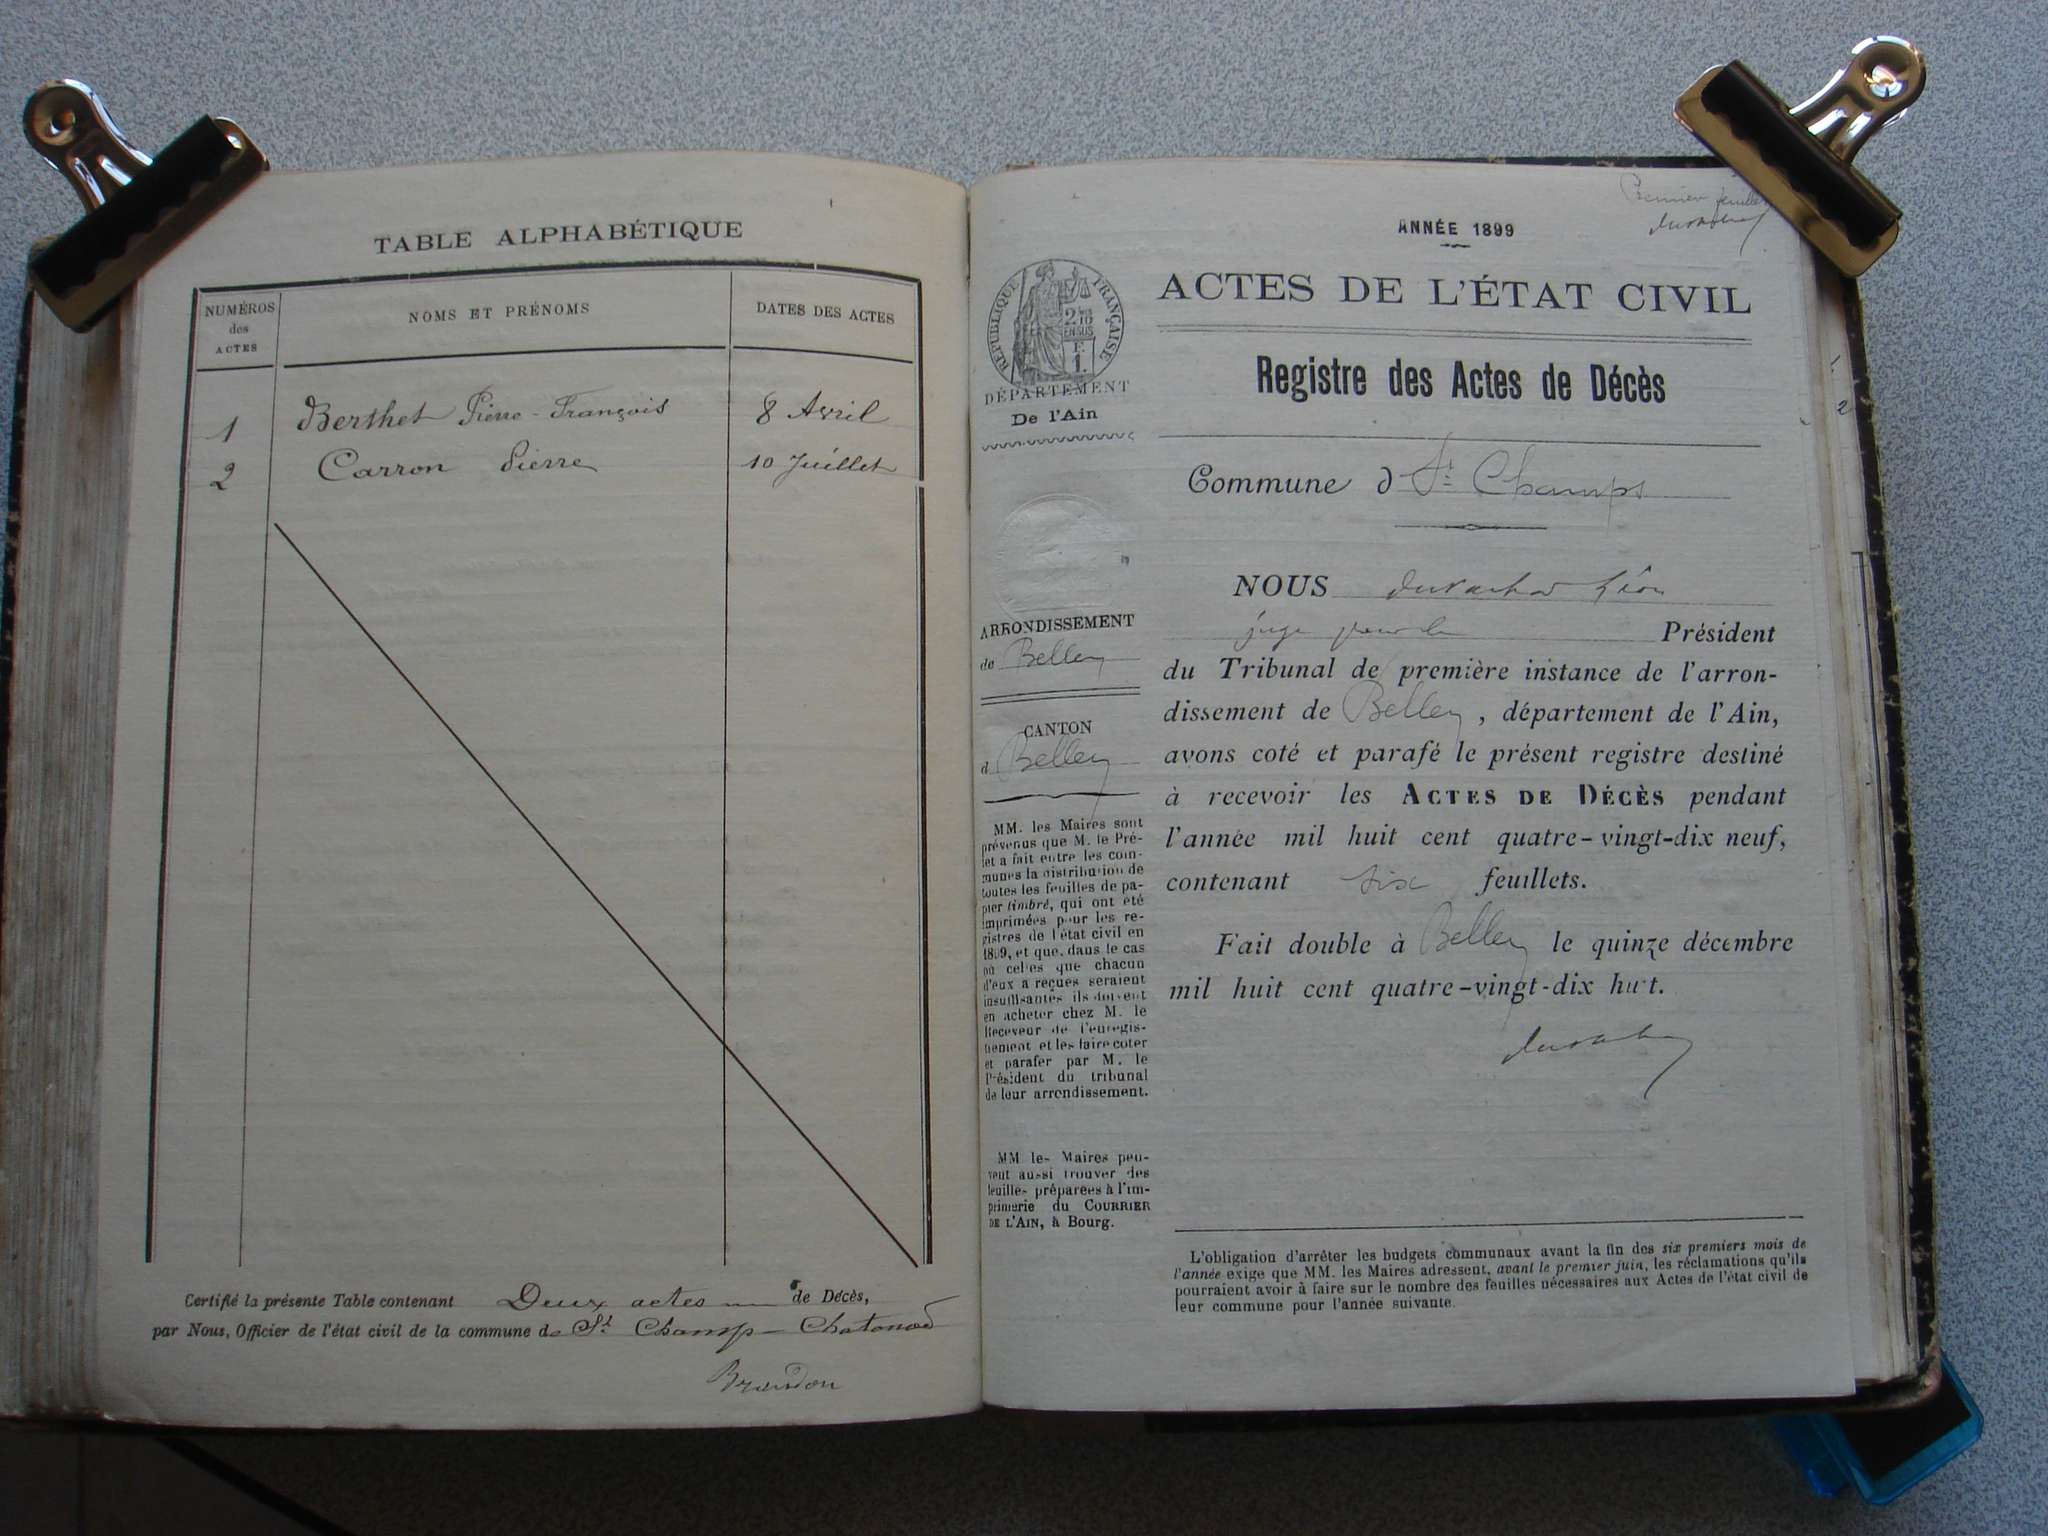 TABLE ALPHABÉTIQUE
NUMÉROS
des
ACTES
NOMS ET PRÉNOMS
DATES DES ACTES
1 Berthet Pierre-François 8 Avril
2 Carron Pierre 10 Juillet
Certifié la présente Table contenant Deux actes de Décès,
par Nous, Officier de l'état civil de la commune de St Champ-Chatonod
Brandon
Premier feuillet
ANNÉE 1899
ACTES DE L'ÉTAT CIVIL
Registre des Actes de Décès
RÉPUBLIQUE FRANÇAISE
2/10
EN SUS
F.
1.
DÉPARTEMENT
De l'Ain
ARRONDISSEMENT
de Belley
CANTON
d Belley
MM. les Maires sont
prévenus que M. le Pré-
fet a fait entre les com-
munes la distribution de
toutes les feuilles de pa-
pier timbré, qui ont été
imprimées pour les re-
gistres de l'état civil en
1899, et que, dans le cas
où celles que chacun
d'eux a reçues seraient
insuffisantes ils doivent
en acheter chez M. le
Receveur de l'enregis-
trement et les faire coter
et parafer par M. le
Président du tribunal
de leur arrondissement.
MM les Maires peu-
vent aussi trouver des
feuilles préparées à l'im-
primerie du COURRIER
DE L'AIN, à Bourg.
Commune d St Champs
NOUS Léon
juge pour le Président
du Tribunal de première instance de l'arron-
dissement de Belley, département de l'Ain,
avons coté et parafé le présent registre destiné
à recevoir les ACTES DE DÉCÈS pendant
l'année mil huit cent quatre-vingt-dix neuf,
contenant six feuillets.
Fait double à Belley le quinze décembre
mil huit cent quatre-vingt-dix huit.
L'obligation d'arrêter les budgets communaux avant la fin des six premiers mois de
l'année exige que MM. les Maires adressent, avant le premier juin, les réclamations qu'ils
pourraient avoir à faire sur le nombre des feuilles nécessaires aux Actes de l'état civil de
leur commune pour l'année suivante.